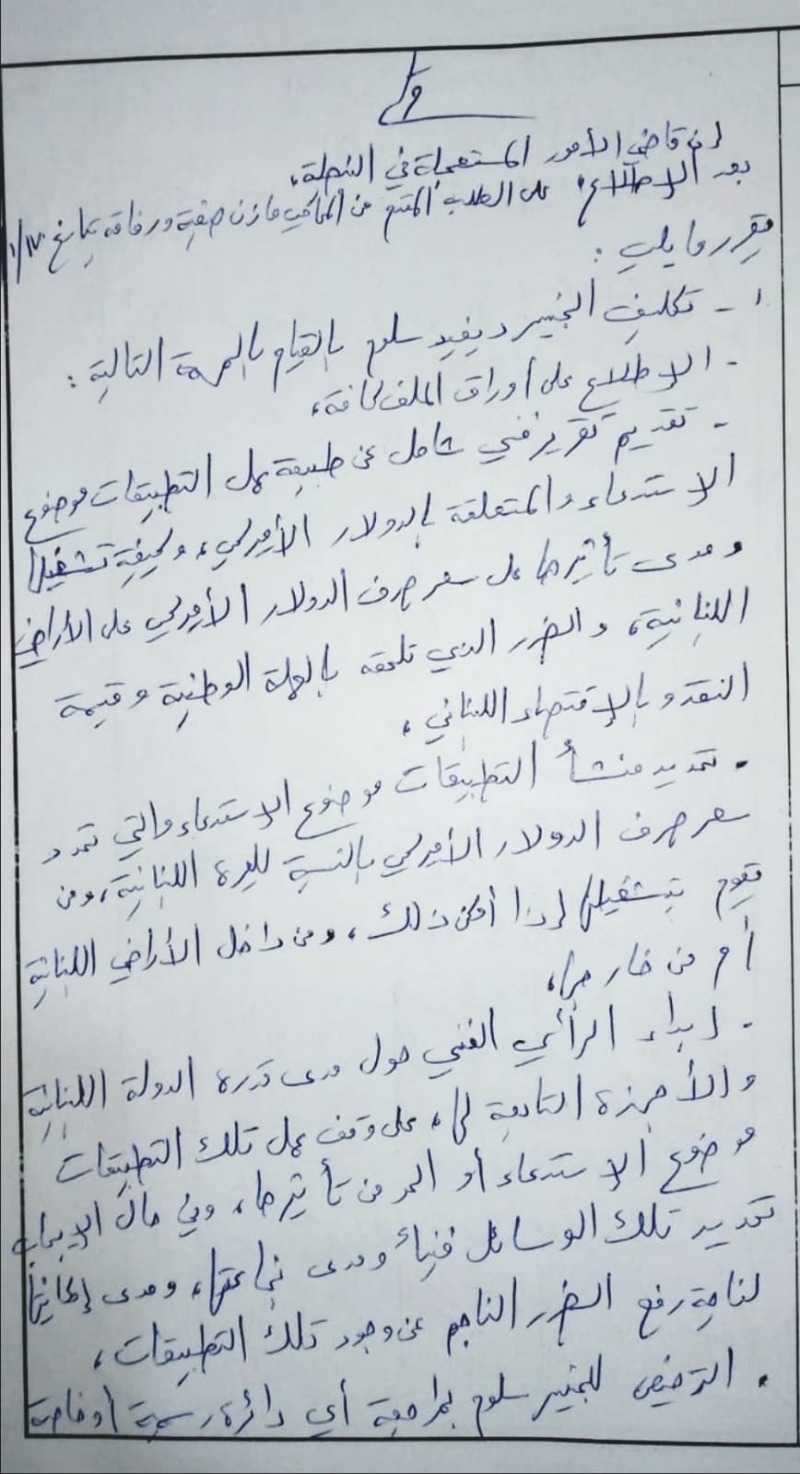 قرار
إن قاضي الأمور المستعجلة في النبطية،
بعد الإطلاع على الطلب المقدم من المحامي مازن صفية ورفاقه بتاريخ
يقرر ما يلي :
١ - تكليف الخبير ديفيد سلوم بالقيام بالمهمة التالية :
- الإطلاع على أوراق الملف كافة،
- تقديم تقرير فني شامل عن طبيعة عمل التطبيقات موضوع
الاستدعاء والمتعلقة بالدولار الأميركي، وكيفية تشغيلها
ومدى تأثيرها على سعر صرف الدولار الأميركي على الأراضي
اللبنانية، والضرر الذي تلحقه بالعملة الوطنية وقيمة
النقد و بالإقتصاد اللبناني،
- تحديد منشأ التطبيقات موضوع الاستدعاء والتي تحدد
سعر صرف الدولار الأميركي بالنسبة لليرة اللبنانية، ومن
يقوم بتشغيلها إذا أمكن ذلك، ومن داخل الأراضي اللبنانية
أم من خارجها،
- إبداء الرأي الفني حول مدى قدرة الدولة اللبنانية
والأجهزة التابعة لها، على وقف عمل تلك التطبيقات
موضوع الاستدعاء أو الحد من تأثيرها، وفي حال الإيجاب
تحديد تلك الوسائل فنياً ومدى نجاعتها، ومدى إمكانيتها
لناحية رفع الضرر الناجم عن وجود تلك التطبيقات،
- الترخيص للخبير سلوم بمراجعة أي دائرة رسمية أو خاصة